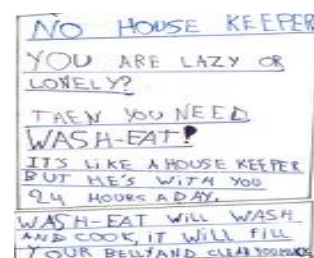 NO HOUSE KEEPER
YOU ARE LAZY OR
LONELY?
THEN YOU NEED
WASH-EAT!
ITS LIKE A HOUSE KEEPER
BUT HE'S WITH YOU
24 HOURS A DAY.
WASH-EAT WILL WASH
AND COOK, IT WILL FILL
YOUR BELLY AND CLEAN YOUR